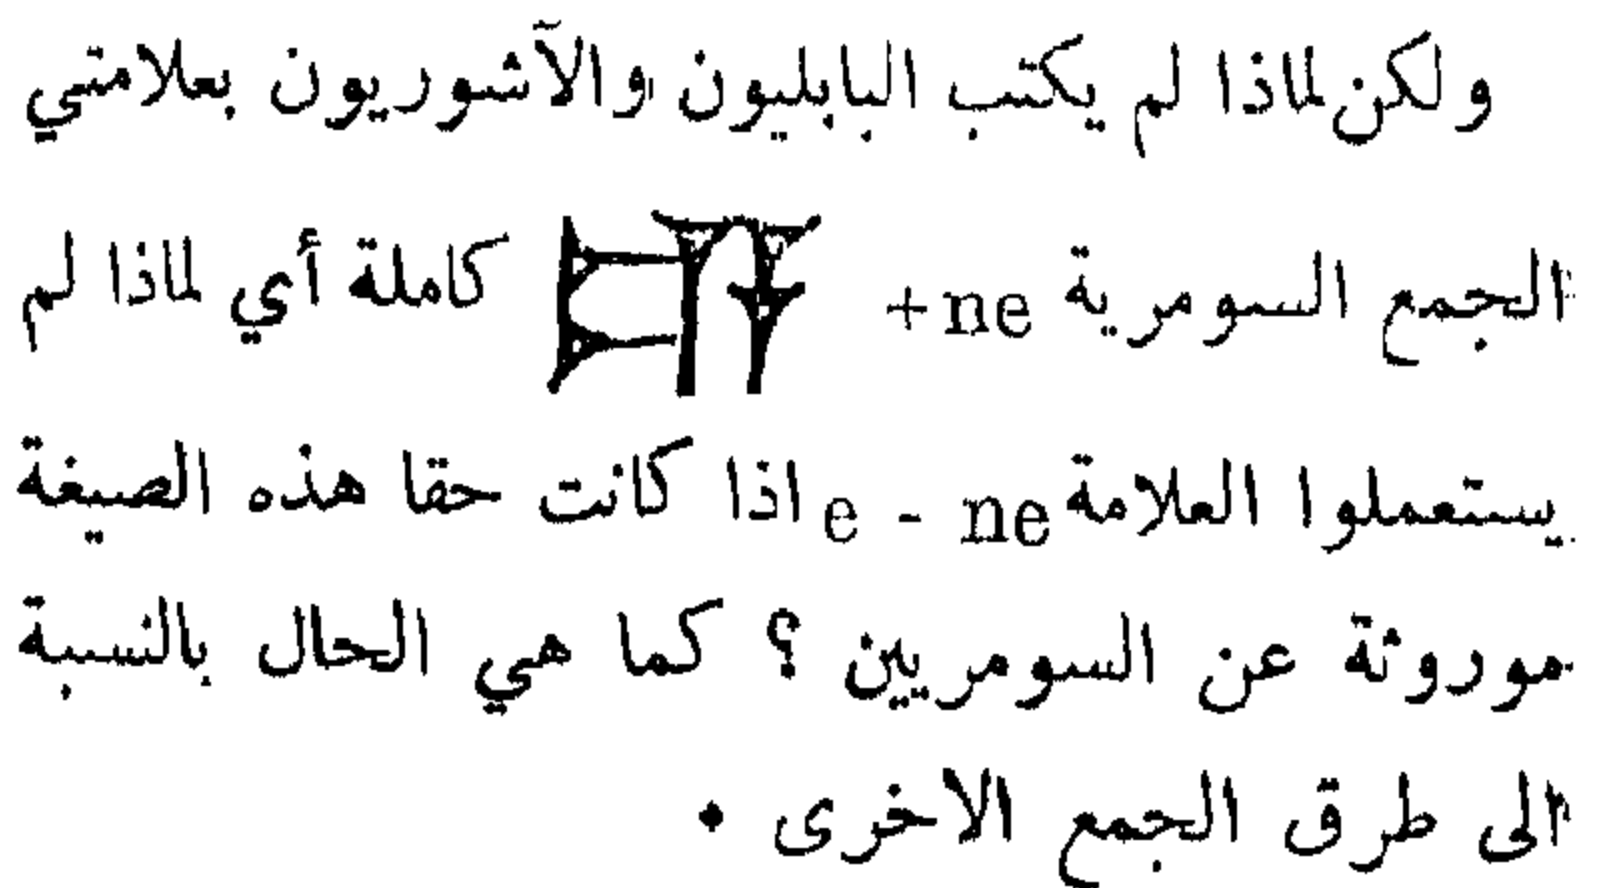 ولكن لماذا لم يكتب البابليون والآشوريون بعلامتي
الجمع السومرية ne+ كاملة أي لماذا لم
يستعملوا العلامة e - ne اذا كانت حقا هذه الصيغة
موروثة عن السومريين ؟ كما هي الحال بالنسبة
الى طرق الجمع الاخرى .